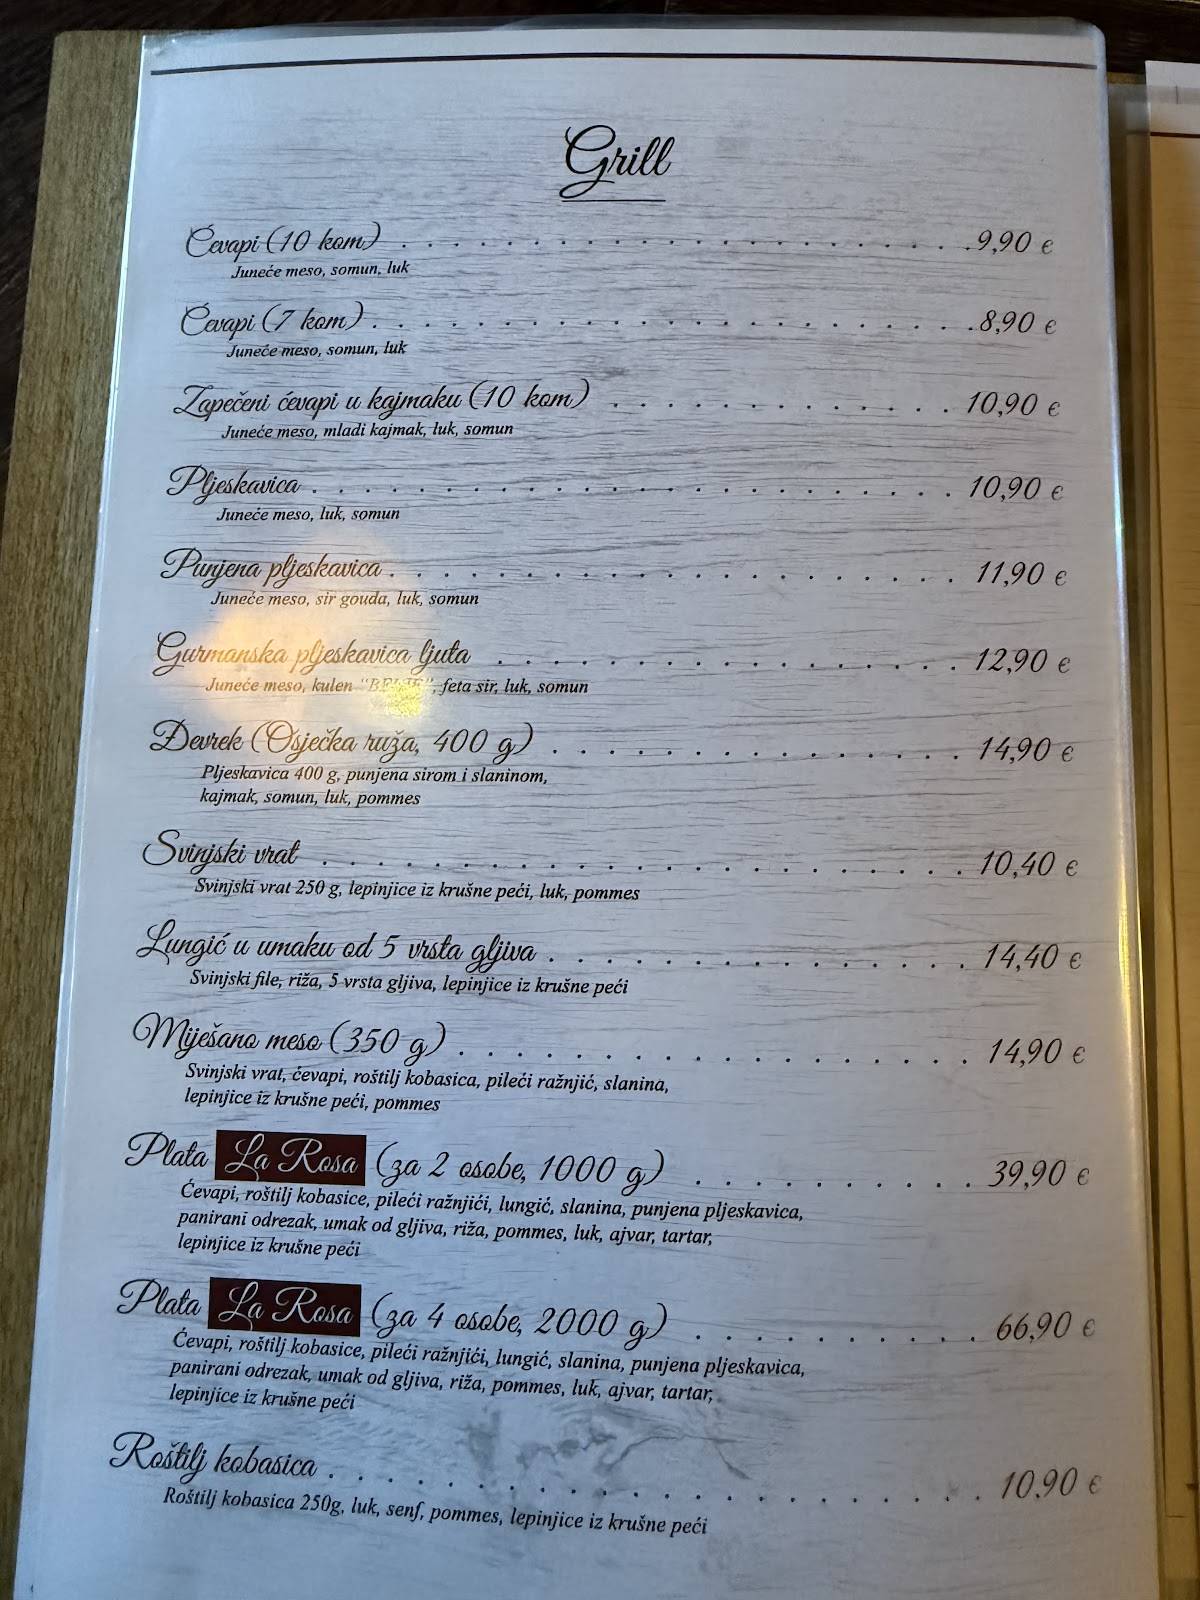 Grill
Ćevapi (10 kom) . . . . . . . . . . . . . . . . . . . . . . 9,90 €
Juneće meso, somun, luk
Ćevapi (7 kom) . . . . . . . . . . . . . . . . . . . . . . 8,90 €
Juneće meso, somun, luk
Zapečeni ćevapi u kajmaku (10 kom) . . . . . . . . . . . . . 10,90 €
Juneće meso, mladi kajmak, luk, somun
Pljeskavica . . . . . . . . . . . . . . . . . . . . . . . . 10,90 €
Juneće meso, luk, somun
Punjena pljeskavica . . . . . . . . . . . . . . . . . . . . 11,90 €
Juneće meso, sir gouda, luk, somun
Gurmanska pljeskavica ljuta . . . . . . . . . . . . . . . . 12,90 €
Juneće meso, kulen feta sir, luk, somun
Đevrek (Osječka ruža, 400 g) . . . . . . . . . . . . . . . 14,90 €
Pljeskavica 400 g, punjena sirom i slaninom,
kajmak, somun, luk, pommes
Svinjski vrat . . . . . . . . . . . . . . . . . . . . . . . 10,40 €
Svinjski vrat 250 g, lepinjice iz krušne peći, luk, pommes
Lungić u umaku od 5 vrsta gljiva . . . . . . . . . . . . . . 14,40 €
Svinjski file, riža, 5 vrsta gljiva, lepinjice iz krušne peći
Miješano meso (350 g) . . . . . . . . . . . . . . . . . . 14,90 €
Svinjski vrat, ćevapi, roštilj kobasica, pileći ražnjić, slanina,
lepinjice iz krušne peći, pommes
Plata La Rosa (za 2 osobe, 1000 g) . . . . . . . . . . . 39,90 €
Ćevapi, roštilj kobasice, pileći ražnjići, lungić, slanina, punjena pljeskavica,
panirani odrezak, umak od gljiva, riža, pommes, luk, ajvar, tartar,
lepinjice iz krušne peći
Plata La Rosa (za 4 osobe, 2000 g) . . . . . . . . . . . 66,90 €
Ćevapi, roštilj kobasice, pileći ražnjići, lungić, slanina, punjena pljeskavica,
panirani odrezak, umak od gljiva, riža, pommes, luk, ajvar, tartar,
lepinjice iz krušne peći
Roštilj kobasica . . . . . . . . . . . . . . . . . . . . . . 10,90 €
Roštilj kobasica 250g, luk, senf, pommes, lepinjice iz krušne peći